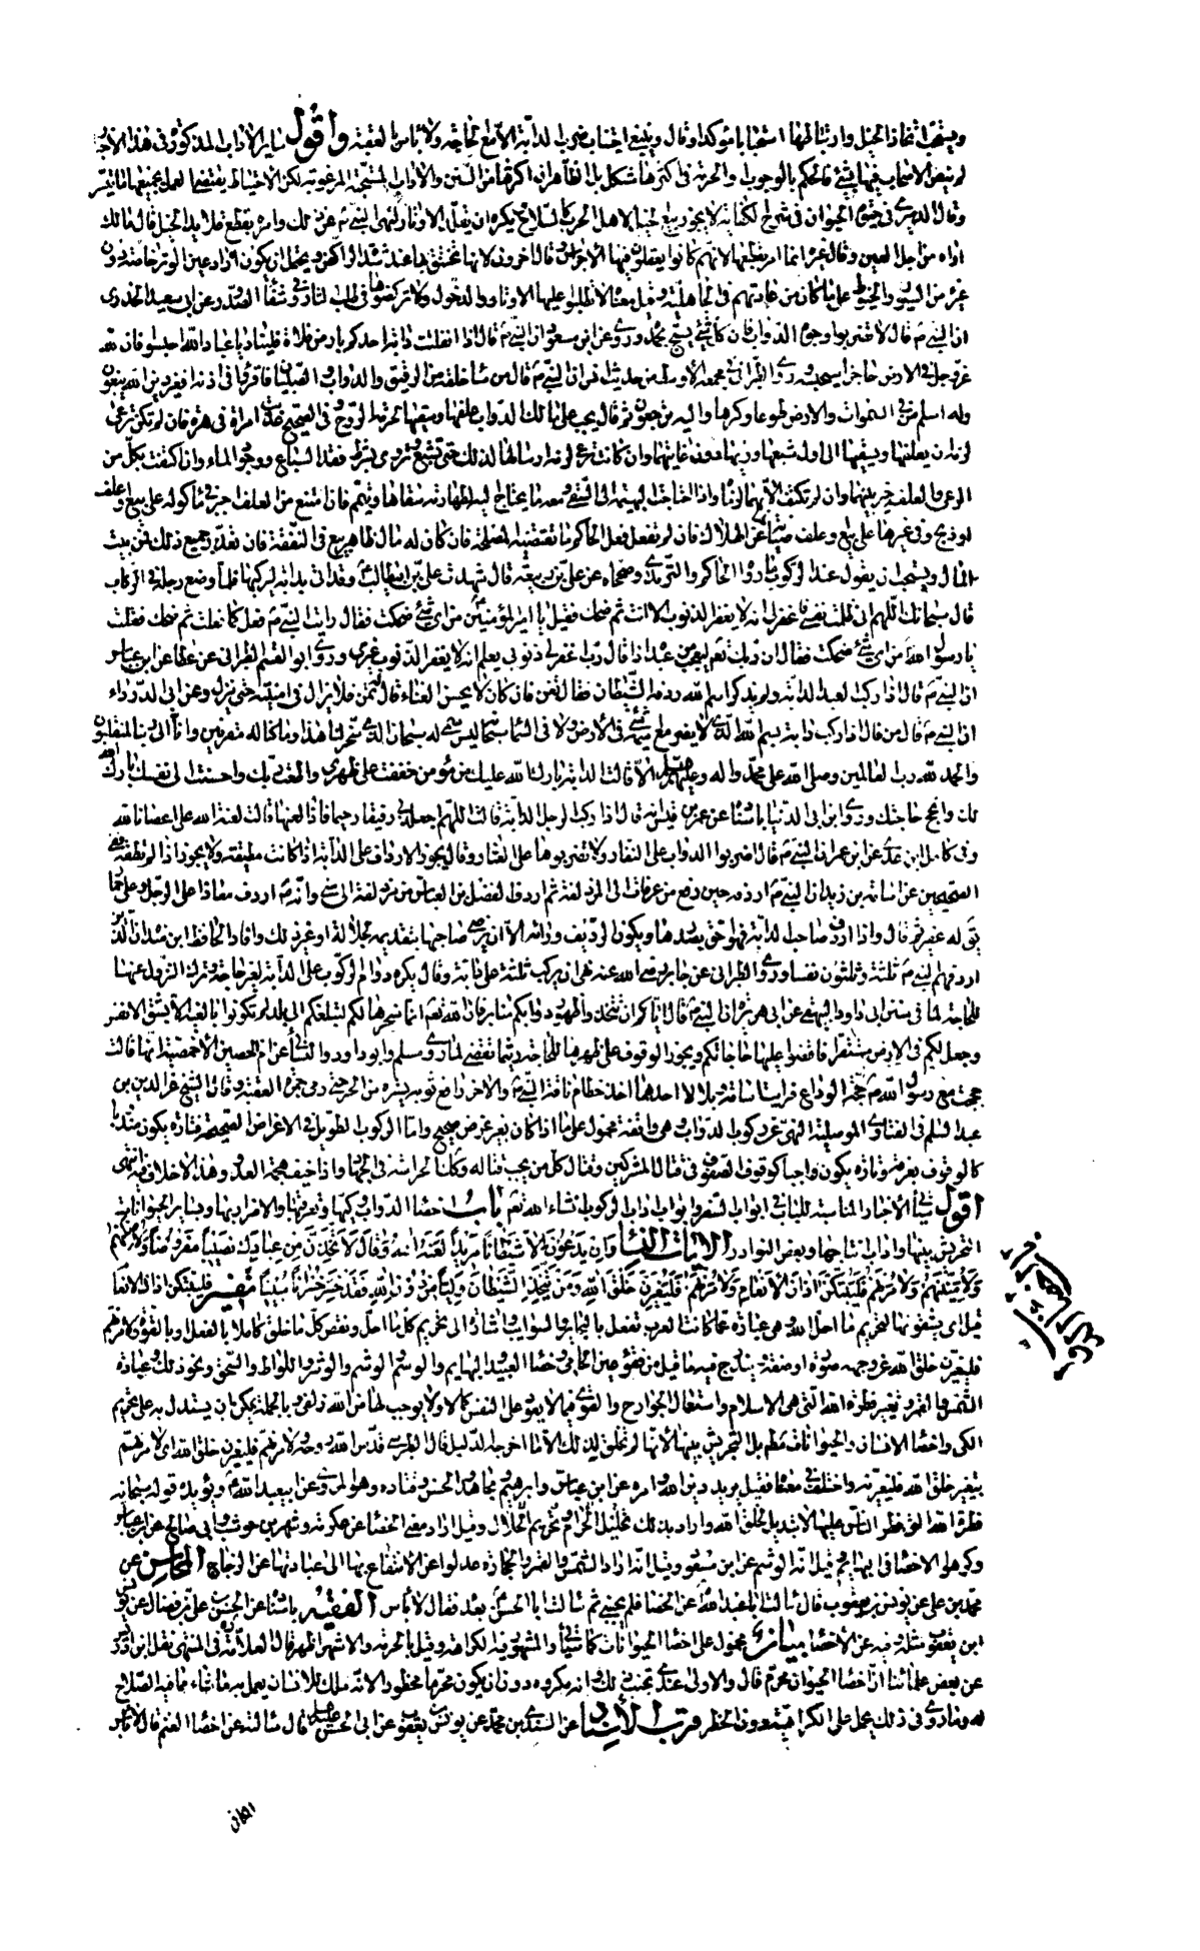 ويستحب اتخاذ الخيل وارتباطها استحبابا مؤكدا وقال وينبغي اجتناب ضرب الدابة الا مع الحاجة ولا باس بالعقبة واقول ساير الآداب المذكورة في هذا الاخبار
لم يتعرض الاصحاب فيها بشئ والحكم بالوجوب او الحرمة في اكثرها مشكل بل الظاهر ان اكثرها من السنن والآداب المستحبة المرغوبة لكن الاحتياط يقتضي العمل بجميعها ما تيسر
وقال الدميري في حيوة الحيوان في شرح الكفاية لا يجوز بيع الخيل لاهل الحرب كالسلاح ويكره ان يقلد الاوتار لنهى النبي ص عن ذلك وامره بقطع قلايد الخيل قال مالك
اراه من اجل العين وقال غيره انما امر بقطعها لانهم كانوا يعلقون فيها الاجراس وقال آخرون لانها تختنق بها عند شدة الركض ويحتمل ان يكون اراد عين الوتر خاصة دون
غيره من السيور والخيوط على ما كان من عادتهم في الجاهلية وقيل معناه لا تطلبوا عليها الاوتار والدخول ولا تركضوها في طلب الثار وفي شفاء الصدور عن ابي سعيد الخدري
ان النبي ص قال لا تضربوا وجوه الدواب فان كل شئ يسبح بحمده وروى عن ابن مسعود ان النبي ص قال اذا انفلتت دابة احدكم بارض فلاة فليناد يا عباد الله احبسوا فان لله
عز وجل في الارض حاجزا سيحبسه وروى الطبراني في معجمه الأوسط من حديث انس ان النبي ص قال من ساء خلقه من الرقيق والدواب والصبيان فاقرؤا في اذنه افغير دين الله يبغون
وله اسلم من في السموات والارض طوعا وكرها واليه يرجعون ثم قال يجب على مالك الدواب علفها وسقيها لحرمة الروح في الصحيح عذبت امراة في هرة فان لم تكن ترعى
لزمه ان يعلفها ويسقيها الى اول شبعها وريها دون غايتهما وان كانت ترعى لزمه ارسالها لذلك حتى تشبع وتروى بشرط فقد السباع ووجود الماء وان اكتفت بكل من
الرعي والعلف خير بينهما وان لم تكتف الا بهما لزماه واذا احتاجت البهيمة الى السقي ومعه ما يحتاج اليه لطهارته سقاها وتيمم فان امتنع من العلف اجبر في ماكوله على بيع او علف
او ذبح وفي غيرها على بيع او علف صيانة عن الهلاك فان لم يفعل فعل الحاكم ما تقتضيه المصلحة فان كان له مال ظاهر بيع في النفقة فان تعذر جميع ذلك فمن بيت
المال ويستحب ان يقول عند الركوب ما رواه الحاكم والترمذي وصححاه عن علي بن ربيعة قال شهدت علي بن ابيطالب ع وقد اتي بدابة ليركبها فلما وضع رجله في الركاب
قال سبحانك اللهم اني ظلمت نفسي فاغفر لي انه لا يغفر الذنوب الا انت ثم ضحك فقيل يا امير المؤمنين من اي شئ ضحكت فقال رايت النبي ص فعل كما فعلت ثم ضحك فقلت
يا رسول الله من اي شئ ضحكت فقال ان ربك تعالى يعجب من عبده اذا قال رب اغفر لي ذنوبي يعلم انه لا يغفر الذنوب غيري وروى ابو القسم الطبراني عن عطا عن ابن عباس
ان النبي ص قال اذا ركب العبد الدابة ولم يذكر اسم الله ردفه الشيطان فقال تغن فان كان لا يحسن الغناء قال تمن فلا يزال في امنيته حتى ينزل وعن ابي الدرداء
ان النبي ص قال من قال اذا ركب دابة بسم الله الذي لا يضر مع اسمه شئ في الارض ولا في السماء سبحانه ليس له سمي سبحان الذي سخر لنا هذا وما كنا له مقرنين وانا الى ربنا لمنقلبون
والحمد لله رب العالمين وصلى الله على محمد واله وعليهم السلام الا قالت الدابة بارك الله عليك من مؤمن خففت على ظهري واطعت ربك واحسنت الى نفسك بارك الله
لك وانجح حاجتك وروى ابن ابي الدنيا باسناده عن عمرو بن قيس انه قال اذا ركب الرجل الدابة قالت اللهم اجعله بي رفيقا رحيما فاذا لعنها قالت لعنة الله على اعصانا لله
وفي كامل ابن عدي عن ابن عمر ان النبي ص قال اضربوا الدواب على النفار ولا تضربوها على العثار وقال يجوز الارداف على الدابة اذا كانت مطيقة ولا يجوز اذا لم تطقه ففي
الصحيحين عن اسامة بن زيد ان النبي ص اردفه حين دفع من عرفات الى المزدلفة ثم اردف الفضل بن العباس من مزدلفة الى منى وانه ص اردف معاذا على الرحل وعلى حمار
يقال له عفير ثم قال واذا اردف صاحب الدابة فهو احق بصدرها ويكون الرديف وراءه الا ان يرضى صاحبها بتقديمه لجلالة او غير ذلك وافاد الحافظ ابن منده ان الذين
اردفهم النبي ص ثلثة وثلثون نفسا وروى الطبراني عن جابر رضي الله عنه نهى ان يركب ثلثة على دابة وقال يكره دوام الركوب على الدابة لغير حاجة وترك النزول عنها
للحاجة لما في سنن ابي داود والبيهقي عن ابي هريرة ان النبي ص قال اياكم ان تتخذوا ظهور دوابكم منابر فان الله تعالى انما سخرها لكم لتبلغكم الى بلد لم تكونوا بالغيه الا بشق الانفس
وجعل لكم في الارض مستقرا فاقضوا عليها حاجاتكم ويجوز الوقوف على ظهرها للحاجة ريثما تقضى لما روى مسلم وابو داود والنسائي عن ام الحصين الاحمصية انها قالت
حججت مع رسول الله ص حجة الوداع فرايت اسامة وبلالا احدهما اخذ خطام ناقة النبي ص والآخر رافع ثوبه يستره من الحر حتى رمى جمرة العقبة وقال الشيخ عز الدين بن
عبد السلم في الفتاوى الموصلية النهي عن ركوب الدواب وهي واقفة محمول على ما اذا كان لغير غرض صحيح واما الركوب الطويل في الاغراض الصحيحة فتارة يكون مندوبا
كالوقوف بعرفة وتارة يكون واجبا كوقوف الصفوف في قتال المشركين وقتال كل من يجب قتاله وكذا الحراسة في الجهاد اذا خيف هجمة العدو وهذا لا خلاف فيه انتهى
اقول سيأتي الاخبار المناسبة للباب في ابواب السفر وابواب اداب الركوب انشاء الله تعالى باب اخصاء الدواب وكيها وتعرقبها والاضرار بها وبساير الحيوانات
التحريش بينها واداب انتاجها وبعض النوادر الايات النساء وَإِن يَدْعُونَ إِلَّا شَيْطَانًا مَرِيدًا لَعَنَهُ اللهُ وَقَالَ لَأَتَّخِذَنَّ مِنْ عِبَادِكَ نَصِيبًا مَفْرُوضًا وَلَأُضِلَّنَّهُمْ
وَلَأُمَنِّيَنَّهُمْ وَلَآمُرَنَّهُمْ فَلَيُبَتِّكُنَّ آذَانَ الْأَنْعَامِ وَلَآمُرَنَّهُمْ فَلَيُغَيِّرُنَّ خَلْقَ اللهِ وَمَنْ يَتَّخِذِ الشَّيْطَانَ وَلِيًّا مِنْ دُونِ اللهِ فَقَدْ خَسِرَ خُسْرَانًا مُبِينًا تفسير فليبتكن اذان الانعام
قيل اي يشقونها لتحريم ما احل الله وهي عبارة عما كانت العرب تفعل بالبحاير والسوايب واشارة الى تحريم كل ما احل ونقص كل ما خلق كاملا بالفعل او بالقوة ولآمرنهم
فليغيرن خلق الله عن وجهه صورة او صفة ويندرج فيه ما قيل من فقؤ عين الحامي وخصاء العبيد والبهايم والوسم والوشم والوشر واللواط والسحق ونحو ذلك وعبادة
الشمس والقمر وتغيير فطرة الله التي هي الاسلام واستعمال الجوارح والقوى فيما لا يعود على النفس كمالا ولا يوجب لها من الله زلفى وبالجملة يمكن ان يستدل به على تحريم
الكي واخصاء الانسان والحيوانات مطلقا بل التحريش بينها لانها لم تخلق لذلك الا ما اخرجه الدليل قال الطبرسي قدس الله روحه ولآمرنهم فليغيرن خلق الله اي لآمرنهم
بتغيير خلق الله فليغيرنه واختلف في معناه فقيل يريد دين الله وامره عن ابن عباس وابراهيم ومجاهد والحسن وقتادة وهو المروي عن ابيعبد الله ع ويؤيده قوله سبحانه
فطرة الله التي فطر الناس عليها لا تبديل لخلق الله واراد بذلك تحليل الحرام وتحريم الحلال وقيل اراد معنى الخصاء عن عكرمة وشهر بن حوشب وابي صالح عن ابن عباس
وكرهوا الاخصاء في البهايم وقيل انه الوشم عن ابن مسعود وقيل انه اراد الشمس والقمر والحجارة عدلوا عن الانتفاع بها الى عبادتها عن الزجاج المحاسن عن
محمد بن علي عن يونس بن يعقوب قال سالت ابا عبد الله ع عن الخصا فلم يجبني ثم سالت ابا الحسن ع بعده فقال لا بأس الفقيه باسناده عن الحسن بن علي بن فضال عن يونس
ابن يعقوب مثله وفيه عن الاخصاء بيان محمول على اخصاء الحيوانات كما سيأتي والمشهور فيه الكراهة وقيل بالحرمة والاشهر اظهر قال العلامة ره في المنتهى نقل ابن ادريس
عن بعض علمائنا ان اخصاء الحيوان محرم قال والاولى عندي تجنب ذلك وانه مكروه دون ان يكون محرما محظورا لانه ملك للانسان يعمل به ما شاء مما فيه الصلاح
له وما روي في ذلك يحمل على الكراهية دون الحظر قرب الاسناد عن السندي بن محمد عن يونس بن يعقوب عن ابي الحسن عليه السلام قال سالته عن اخصاء الغنم قال لا باس
المحاسن